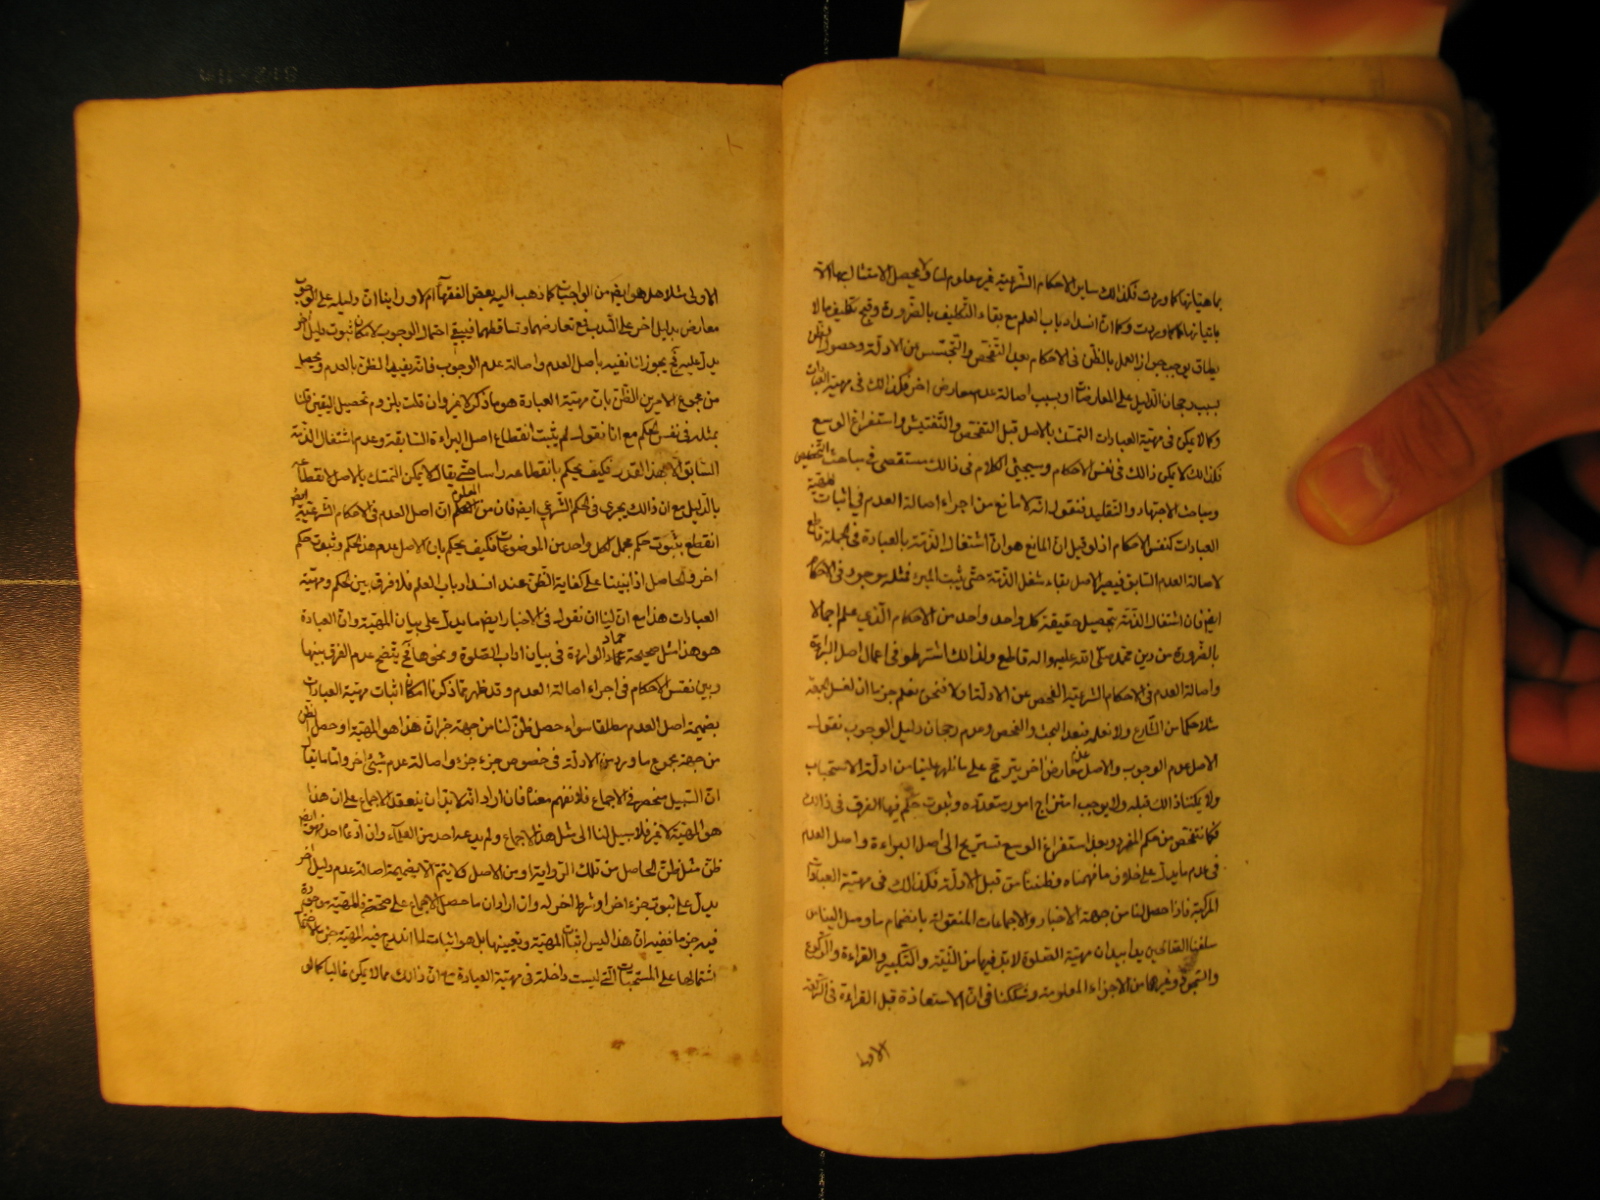 بماهياتها كما وردت فكذلك ساير الاحكام الشرعية غير معلوم لنا ولا يحصل الامتثال بها الا
باتيانها كما وردت وكما ان انسداد باب العلم مع بقاء التكليف بالضرورة وقبح تكليف ما لا
يطاق يوجب جواز العمل بالظن فى الاحكام بعد التفحص والتجسس من الادلة وحصول الظن
بسبب رجحان الدليل على المعارضات او بسبب اصالة عدم معارض اخر فكذلك فى مهية العبادات
وكما لا يمكن فى مهية العبادات التمسك بالاصل قبل التفحص والتفتيش واستفراغ الوسع
فكذلك لا يمكن ذلك فى نفس الاحكام وسيجئ الكلام فى ذلك مستقصى فى مباحث التخصيص
ومباحث الاجتهاد والتقليد فنقول انه لا مانع من اجراء اصالة العدم فى اثبات مهية
العبادات كنفس الاحكام اذ لو قيل ان المانع هو ان اشتغال الذمة بالعبادة فى الجملة قاطع
لاصالة العدم السابق فيصير الاصل بقاء شغل الذمة حتى يثبت المبرء فمثله موجود فى الاحكام
ايضا فان اشتغال الذمة بتحصيل حقيقة كل واحد واحد من الاحكام الذي علم اجمالا
بالضرورة من دين محمد صلى الله عليه واله قاطع ولذلك اشترطوا فى اعمال اصل البرائة
واصالة العدم فى الاحكام الشرعية الفحص عن الادلة ولا فنحن نعلم جزما ان لغسل الجمعة
مثلا حكما من الشارع ولا نعلمه فبعد البحث والفحص وعدم رجحان دليل الوجوب نقول
الاصل عدم الوجوب والاصل عدم معارض اخر يترجح على ما ظهر علينا من ادلة الاستحباب
ولا يمكننا ذلك قبله ولا يوجب امتزاج امور متعددة وثبوت حكم فيها الفرق فى ذلك
فكما نتفحص من حكم المفرد وبعد استفراغ الوسع نستريح الى اصل البراءة واصل العدم
فى عدم ما يدل على خلاف ما فهمناه وظنناه من قبل الادلة فكذلك فى مهية العبادات
المركبة فاذا حصل لنا من جهة الاخبار والاجماعات المنقولة بانضمام ما وصل الينا من
سلفنا الصالحين يدا بيد ان مهية الصلوة لا بد فيها من النية والتكبير والقراءة والركوع
والسجود وغيرها من الاجزاء المعلومة وشككنا فى ان الاستعاذة قبل القراءة فى الركعة
الاولى
الاولى مثلا هل هو ايضا من الواجبات كما ذهب اليه بعض الفقهاء ام لا وراينا ان دليله على الوجوب
معارض بدليل اخر على الندب فمع تعارضهما وتساقطهما فيبقى احتمال الوجوب لامكان ثبوت دليل اخر
يدل عليه فح يجوز لنا نفيه باصل العدم واصالة عدم الوجوب فانه يفيد الظن بالعدم ويحصل
من مجموع الامرين الظن بان مهية العبادة هو ما ذكر لا غير وان قلت بلزوم تحصيل اليقين قلنا
بمثله فى نفس الحكم مع انا نقول لم يثبت انقطاع اصل البراءة السابقة وعدم اشتغال الذمة
السابق الا بهذا القدر فكيف يحكم بانقطاعه راسا حتى يقال لا يمكن التمسك بالاصل لانقطاعه
بالدليل مع ان ذلك يجرى فى الحكم الشرعي ايضا فان من المعلوم ان اصل العدم فى الاحكام الشرعية ايضا
انقطع بثبوت حكم مجمل لكل واحد من الموضوعات فكيف يحكم بان الاصل عدم هذا الحكم وثبوت حكم
اخر والحاصل اذا بنينا على كفاية الظن عند انسداد باب العلم فلا فرق بين الحكم ومهية
العبادات هذا مع ان لنا ان نقول فى الاخبار ايضا ما يدل على بيان المهية وان العبادة
هو هذا مثل صحيحة حماد الواردة فى بيان اداب الصلوة ونحوها فح يتضح عدم الفرق بينها
وبين نفس الاحكام فى اجراء اصالة العدم وقد ظهر مما ذكرنا امكان اثبات مهية العبادات
بضميمة اصل العدم مطلقا سواء حصل ظن لنا من جهة خبر ان هذا هو المهية او حصل الظن
من جهة مجموع ما ورد من الادلة فى خصوص جزء جزء واصالة عدم شيئ اخر واما ما يقال
ان السبيل منحصر فى الاجماع فلا نفهم معناه فان اراد انه لا بد ان ينعقد الاجماع على ان هذا
هو المهية لا غير فلا سبيل لنا الى مثل هذا الاجماع ولم يدعه احد من العلماء وان ادعاه احد فهو ايضا
ظن مثل ظن الحاصل من تلك الرواية او من الاصل كما لا يتم الا بضميمة اصالة عدم دليل اخر
يدل على ثبوت جزء اخر او شرط اخر له وان اراد ان ما حصل الاجماع على صحته فالمهية موجودة
فيه جزما ففيه ان هذا ليس اثبات المهية وتعيينها بل هو اثبات لما اندرج فيه المهية جزما لاحتمال
اشتمالها على المستحبات التى ليست داخلة فى مهية العبادة مع ان ذلك مما لا يمكن غالبا كما لو